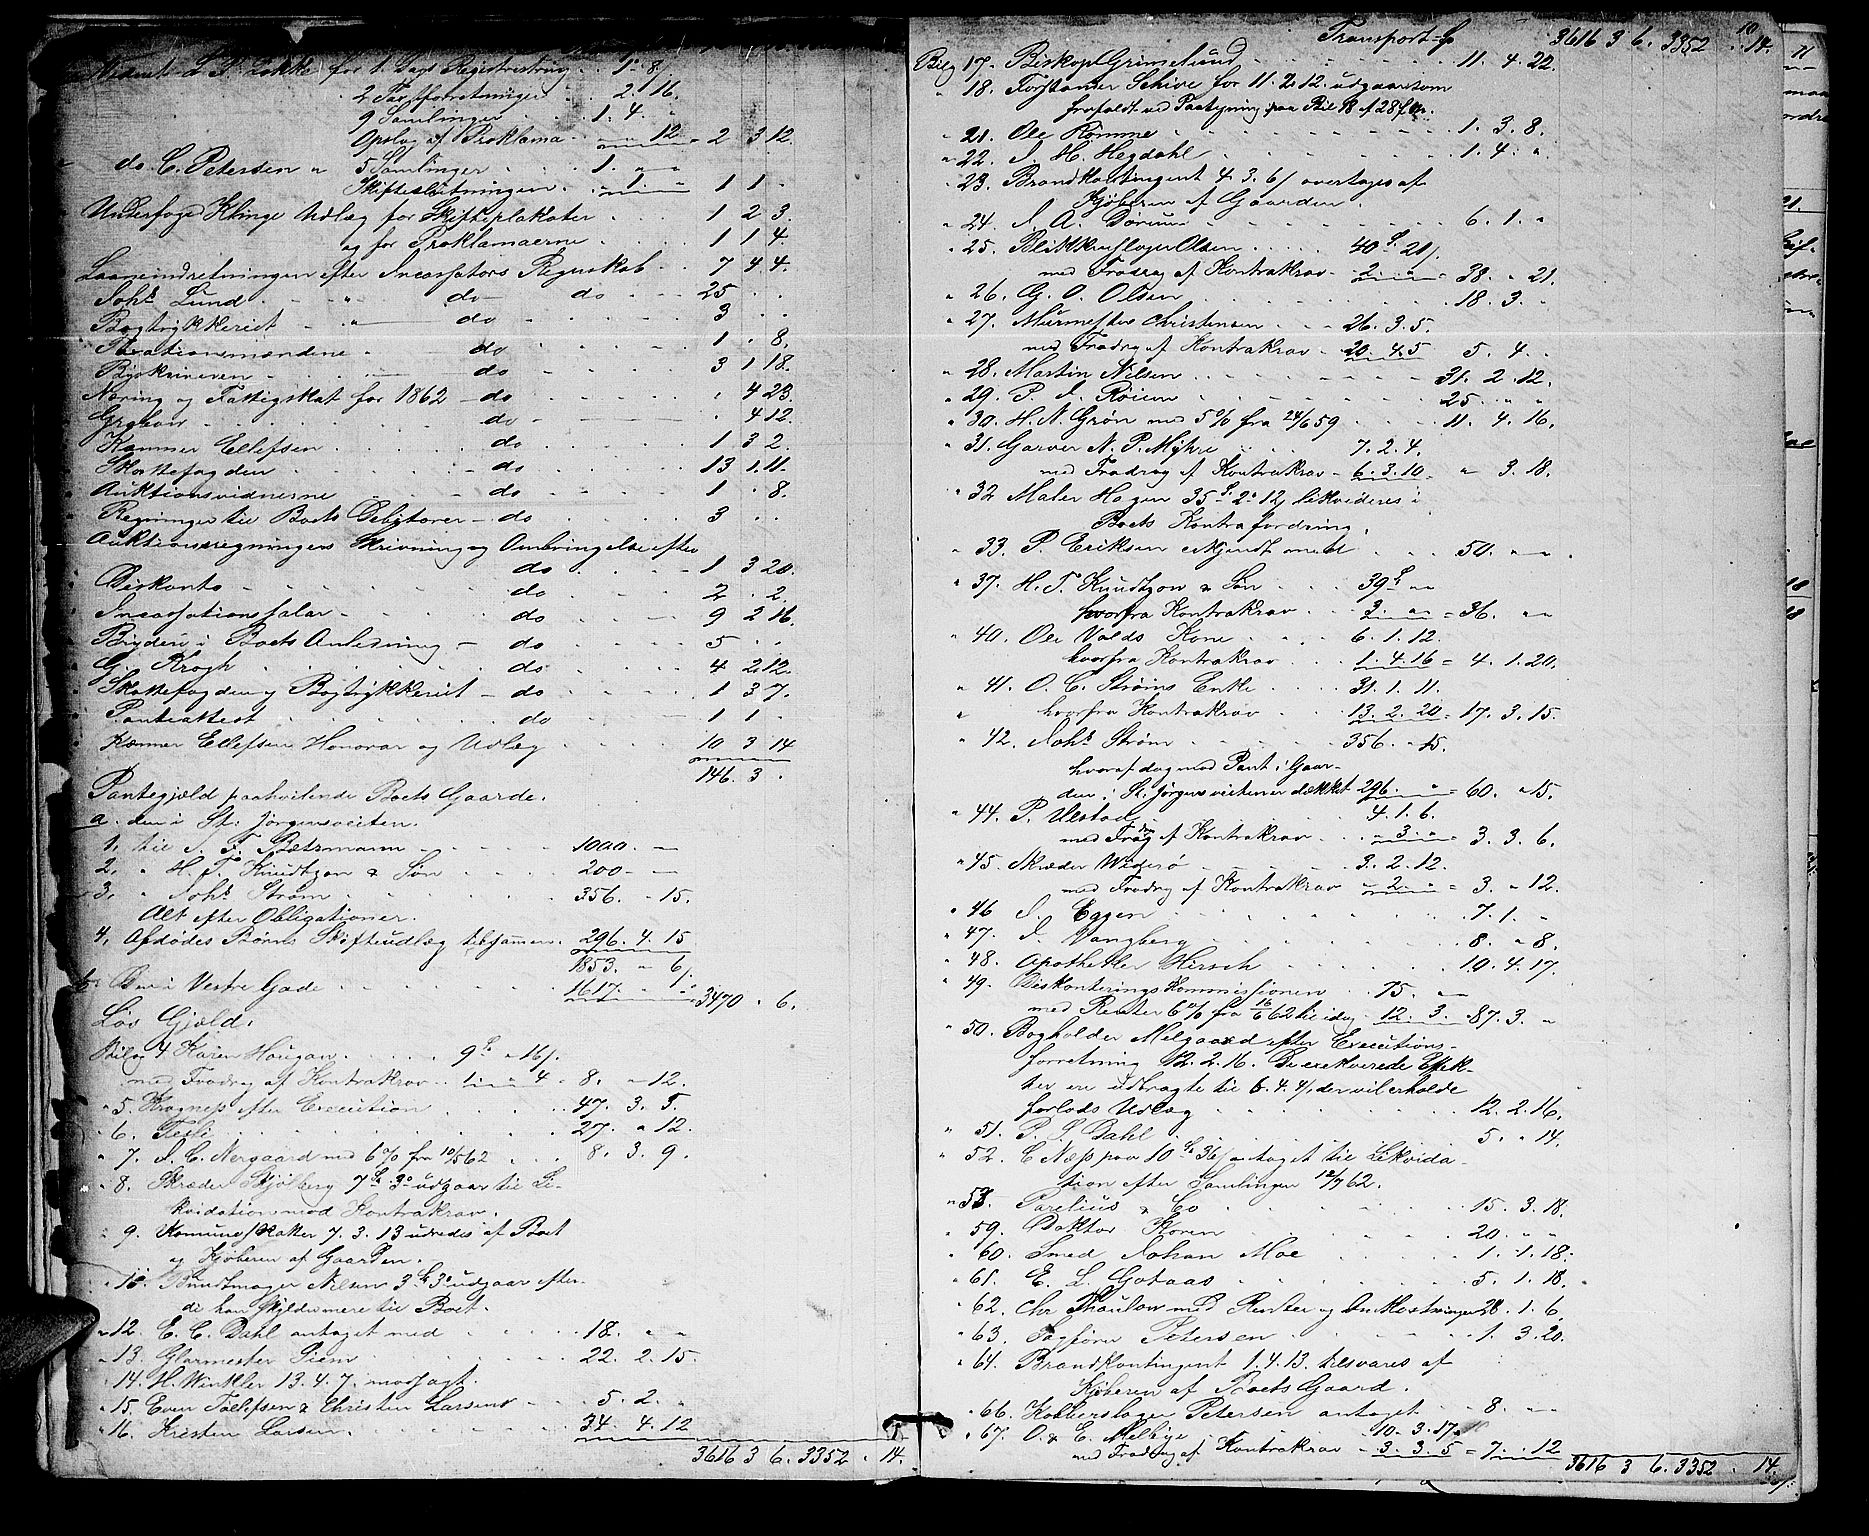 L. P. Lökke for 1 Dags Registrering . . 1 " 8.
2 Taxtforretninger . . 2. 1 16.
9 Samlinger . . 1. 4. "
Opslag af Proklama . . " " 12 = 2 3 12.
do C. Petersen " 5 Samlinger . . 1. " "
Skifteslutningen . " 1. " 1 1 "
Underfoged Klinge Udlæg for Skifteplakater . . . 1 2 3.
og for Proklamaerne . . . 1 1 4.
Laaneindretningen efter Incassators Regnskab . . 7 4. 4.
Johs Lund . . " do do . . . 25 . .
Bogtrykkeriet . " do . . . . 3 . .
Taxationsmændene . do . . . . 1 . 8.
Byskriveren . . do . . . . 3 1 18.
Næring og Fattigskat for 1862 – do . . . . . 4 23.
do . . . . 4 12.
Kæmner Ellefsen . . . . do . . . . 1 3 2.
Skattefogden . . . . do . . . . 13 1. 11.
Auktionsvidnerne . . . do . . . . 1 . 8.
Regninger til Boets Debitorer – do . . . . 3 . .
Auktionsregningers Skrivning og Ombringelse efter
do . . . . 1 3 20.
Diskonto . . . . do . . . . 2 . 2.
Incassationssalær . . . . do . . . . 9 2 16.
Bryderi i Boets Anledning – do . . . . 5 . .
G. Krogh . . . . do . . . . 4 2. 12.
Skattefogden og Bogtrykkeriet – do . . . . 1 3 7.
Panteattest . . . . do . . . . 1 1 .
Kæmner Ellefsen Honorar og Udlæg . . . . 10 3 14
146. 3 .
Pantegjæld paahvilende Boets Gaarde.
a. den i St. Jørgensveiten.
1. til J. F. Bætzmann . . . . 1000. —
2. " H. T. Knudtzon & Søn . . . 200 — —
3. " Johs Strøm . . . . 356. " 15.
Alt efter Obligationer.
4. Afdødes Børns Skifteudlæg tilsammen . 296. 4. 15
1853. " 6.
b. Den i Vestre Gade . . . . 1617. " " 3470 " 6.
Løs Gjæld.
Bilag 4 Karen Haugan . . . . 9 " 16/.
med Fradrag af Kontrakrav . . 1 " 4 = 8. " 12.
" 5. Krogness efter Execution . . . . 47. 3. 5.
" 6. Tesli . . . . 27. " 12.
" 7. J. C. Nergaard med 6% fra 10/5 62 . . . 8. 3. 9.
" 8. Skræder Skjølberg 7 3 udgaar til Li-
kvidation mod Kontrakrav.
" 9. Komuneskatter 7. 3. 13 udredes af Boet
og Kjøberen af Gaarden.
" 10. Bundtmager Nilsen 3 3 udgaar efter-
di han skylder mere til Boet.
" 12. E. C. Dahl antaget med . . . . 18. " "
" 13. Glarmester Piene . . . . 22. 2. 15.
" 14. H. Winkler 13. 4. 7. modsagt.
" 15. Even Tollefsen & Christen Larsens . . 5. 2. "
" 16. Kristen Larsen . . . . 34. 4. 12
3616 3 6. 3352 . 14.
Transport 3616 3 6. 3352 " 14.
Bilg 17. Biskop Grimelund . . . . 11. 4. 22.
" 18. Forstander Schive for 11. 2. 12. udgaar som
frafaldt ved Paategning paa Bil 18 af 28/
" 21. Ole Rømme . . . . 1. 3. 8.
" 22. J. H. Hegdahl . . . . 1. 4. "
" 23. Brandkontingent 4. 3. 6/ overtages af
Kjøberen af Gaarden.
" 24. J. A. Dørum . . . . 6. 1. "
" 25. Blikkenslager Olsen . . . . 40 21/.
med Fradrag af Kontrakrav . 2 " " = 38. " 21.
" 26. G. O. Olsen . . . . 18. 3. "
" 27. Murmester Christensen . . . 26. 3. 5.
med Fradrag af Kontrakrav . 20. 4. 5 5. 4. .
" 28. Martin Nilsen . . . . 31. 2. 12.
" 29. P. J. Røien . . . . 25. " "
" 30. H. N. Grøn med 5% fra 24/6 59 . . . 11. 4. 16.
" 31. Garver N. P. Myhre . . . . 7. 2. 4.
med Fradrag af Kontrakrav – 6. 3. 10 = " 3. 18.
" 32 Maler Hagen 35 2 12, likvideres i
Boets Kontrafordring.
" 33. P. Eriksen erkjendt med . . . 50. " "
" 37. H. T. Knudtzon & Søn . . . 39 " "
hvorfra Kontrakrav . . . 3. " " = 36. " "
" 40. Ole Volds Kone . . . . 6. 1. 12.
hvorfra Kontrakrav . . . 1. 4. 16 = 4. 1. 20.
" 41. O. C. Strøms Enke . . . . 31. 1. 11.
" hvorfra Kontrakrav . . . 13. 2. 20 = 17. 3. 15.
" 42. Johs Strøm . . . . 356. " 15.
hvoraf dog med Pant i Gaar-
den i St. Jørgensveiten er dækket 296. " = 60. " 15.
" 44. P. Ulstad . . . . 4. 1. 6.
med Fradrag af Kontrakrav . . " 3. " = 3. 3. 6.
" 45. Skræder Widerø . . . . 3. 2. 12.
med Fradrag af Kontrakrav " 2. " = 3. " 12.
" 46 J. Eggen . . . . 7. 1. "
" 47. J. Vangberg . . . . 8. " 8.
" 48. Apotheker Hirsch . . . . 10. 4. 17.
" 49. Diskonteringskommissionen . . 75. " "
med Renter 6% fra 16/6 62 til idag . 12. 3. " 87. 3. "
" 50. Bogholder Melgaard efter Executions-
forretning 12. 2. 16. De exekverede Effek-
ter ere udbragte til 6. 4. 4/, der vil erholde
forlods Udlæg . . . . 12. 2. 16.
" 51. P. S. Dahl . . . . 5. " 14.
" 52. C Næss paa 10 36/ antaget til Likvida-
tion efter Samlingen 12/7 62.
" 53. Parelius & Co . . . . 15. 3. 18.
" 59. Doktor Koren . . . . 20. " "
" 60. Smed Johan Moe . . . . 1. 1. 18.
" 61. E. L. Gotaas . . . . 5. 1. 18.
" 62. Chr Thaulow med Renter og Omkostninger 28. 1. 6.
" 63. Sagfører Petersen . . . . 1. 3. 20.
" 64. Brandkontingent 1. 4. 13. tilsvares af
Kjøberen af Boets Gaard.
" 66. Kobberslager Petersen antaget . . 8. " "
" 67. O. & E. Melbye . . . . 10. 3. 17.
med Fradrag af Kontrakrav – 3. 3. 5 = 7. . 12
3616 3 6. 3352 . 14.